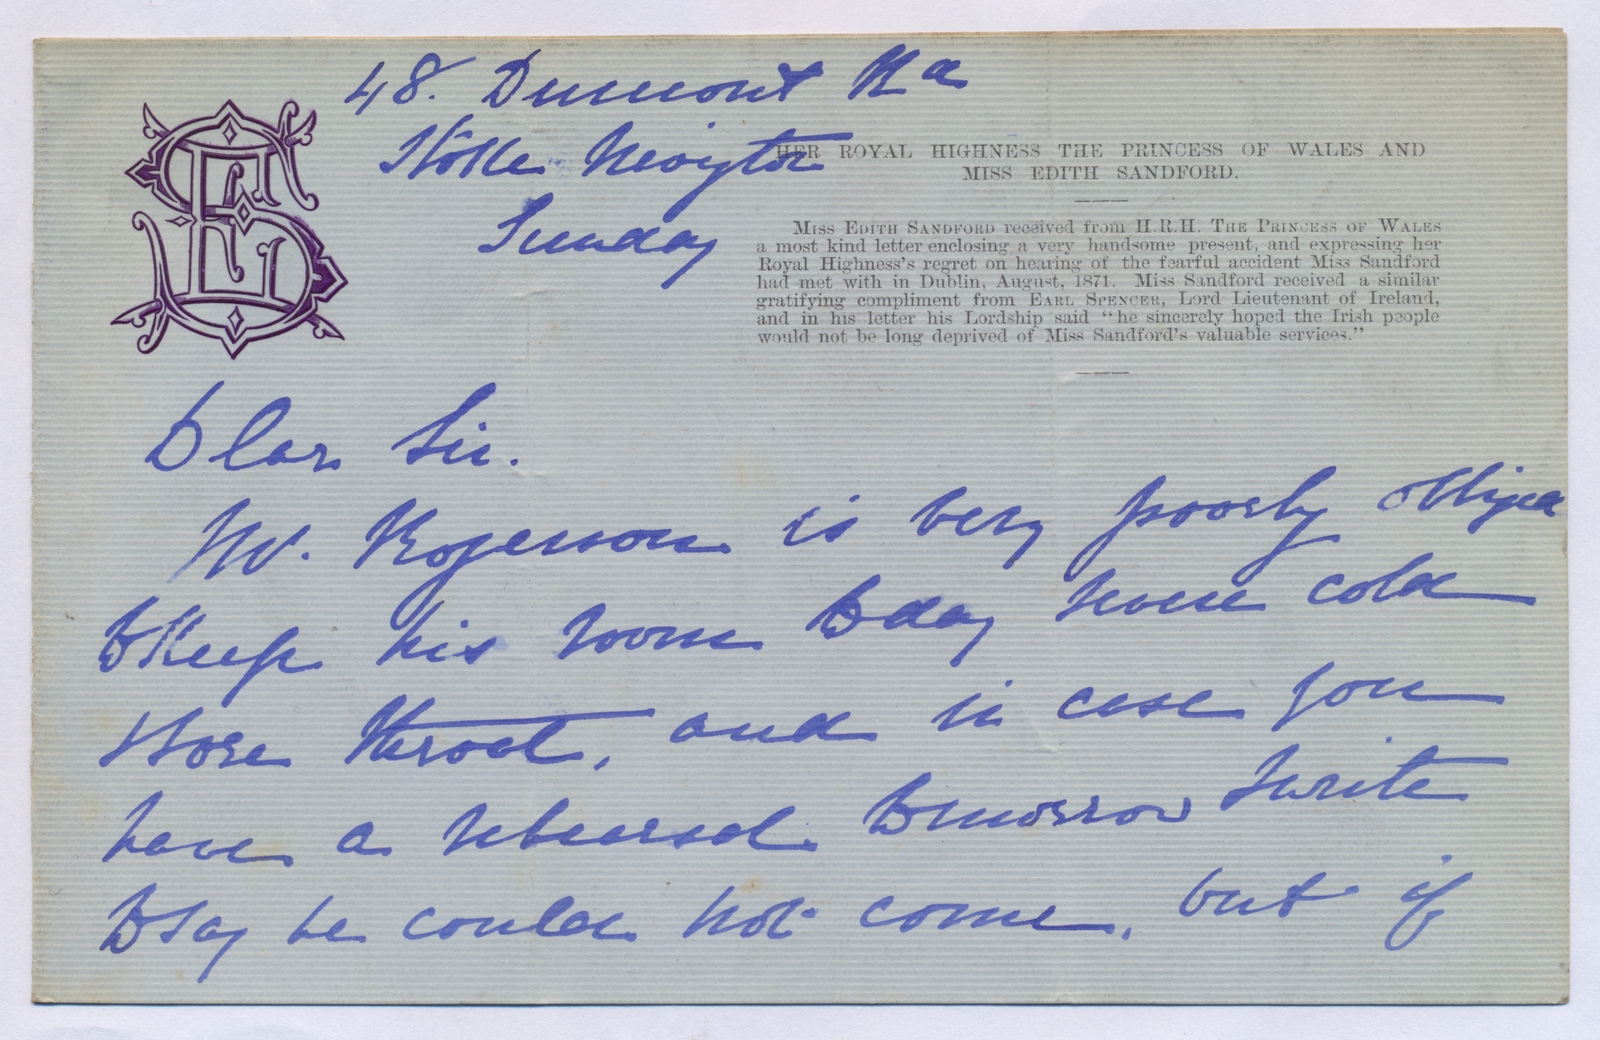 48. Dumont Rd
Stoke Newington
Sunday
HER ROYAL HIGHNESS THE PRINCESS OF WALES AND
MISS EDITH SANDFORD.
MISS EDITH SANDFORD received from H.R.H. THE PRINCESS OF WALES
a most kind letter enclosing a very handsome present, and expressing her
Royal Highness's regret on hearing of the fearful accident Miss Sandford
had met with in Dublin, August, 1871. Miss Sandford received a similar
gratifying compliment from EARL SPENCER, Lord Lieutenant of Ireland,
and in his letter his Lordship said "he sincerely hoped the Irish people
would not be long deprived of Miss Sandford's valuable services."
Dear Sir.
Mr. Rogerson is very poorly obliged
to keep his room today cold
& sore throat, and in case you
have a rehearsal tomorrow I write
to say he could not come, but if